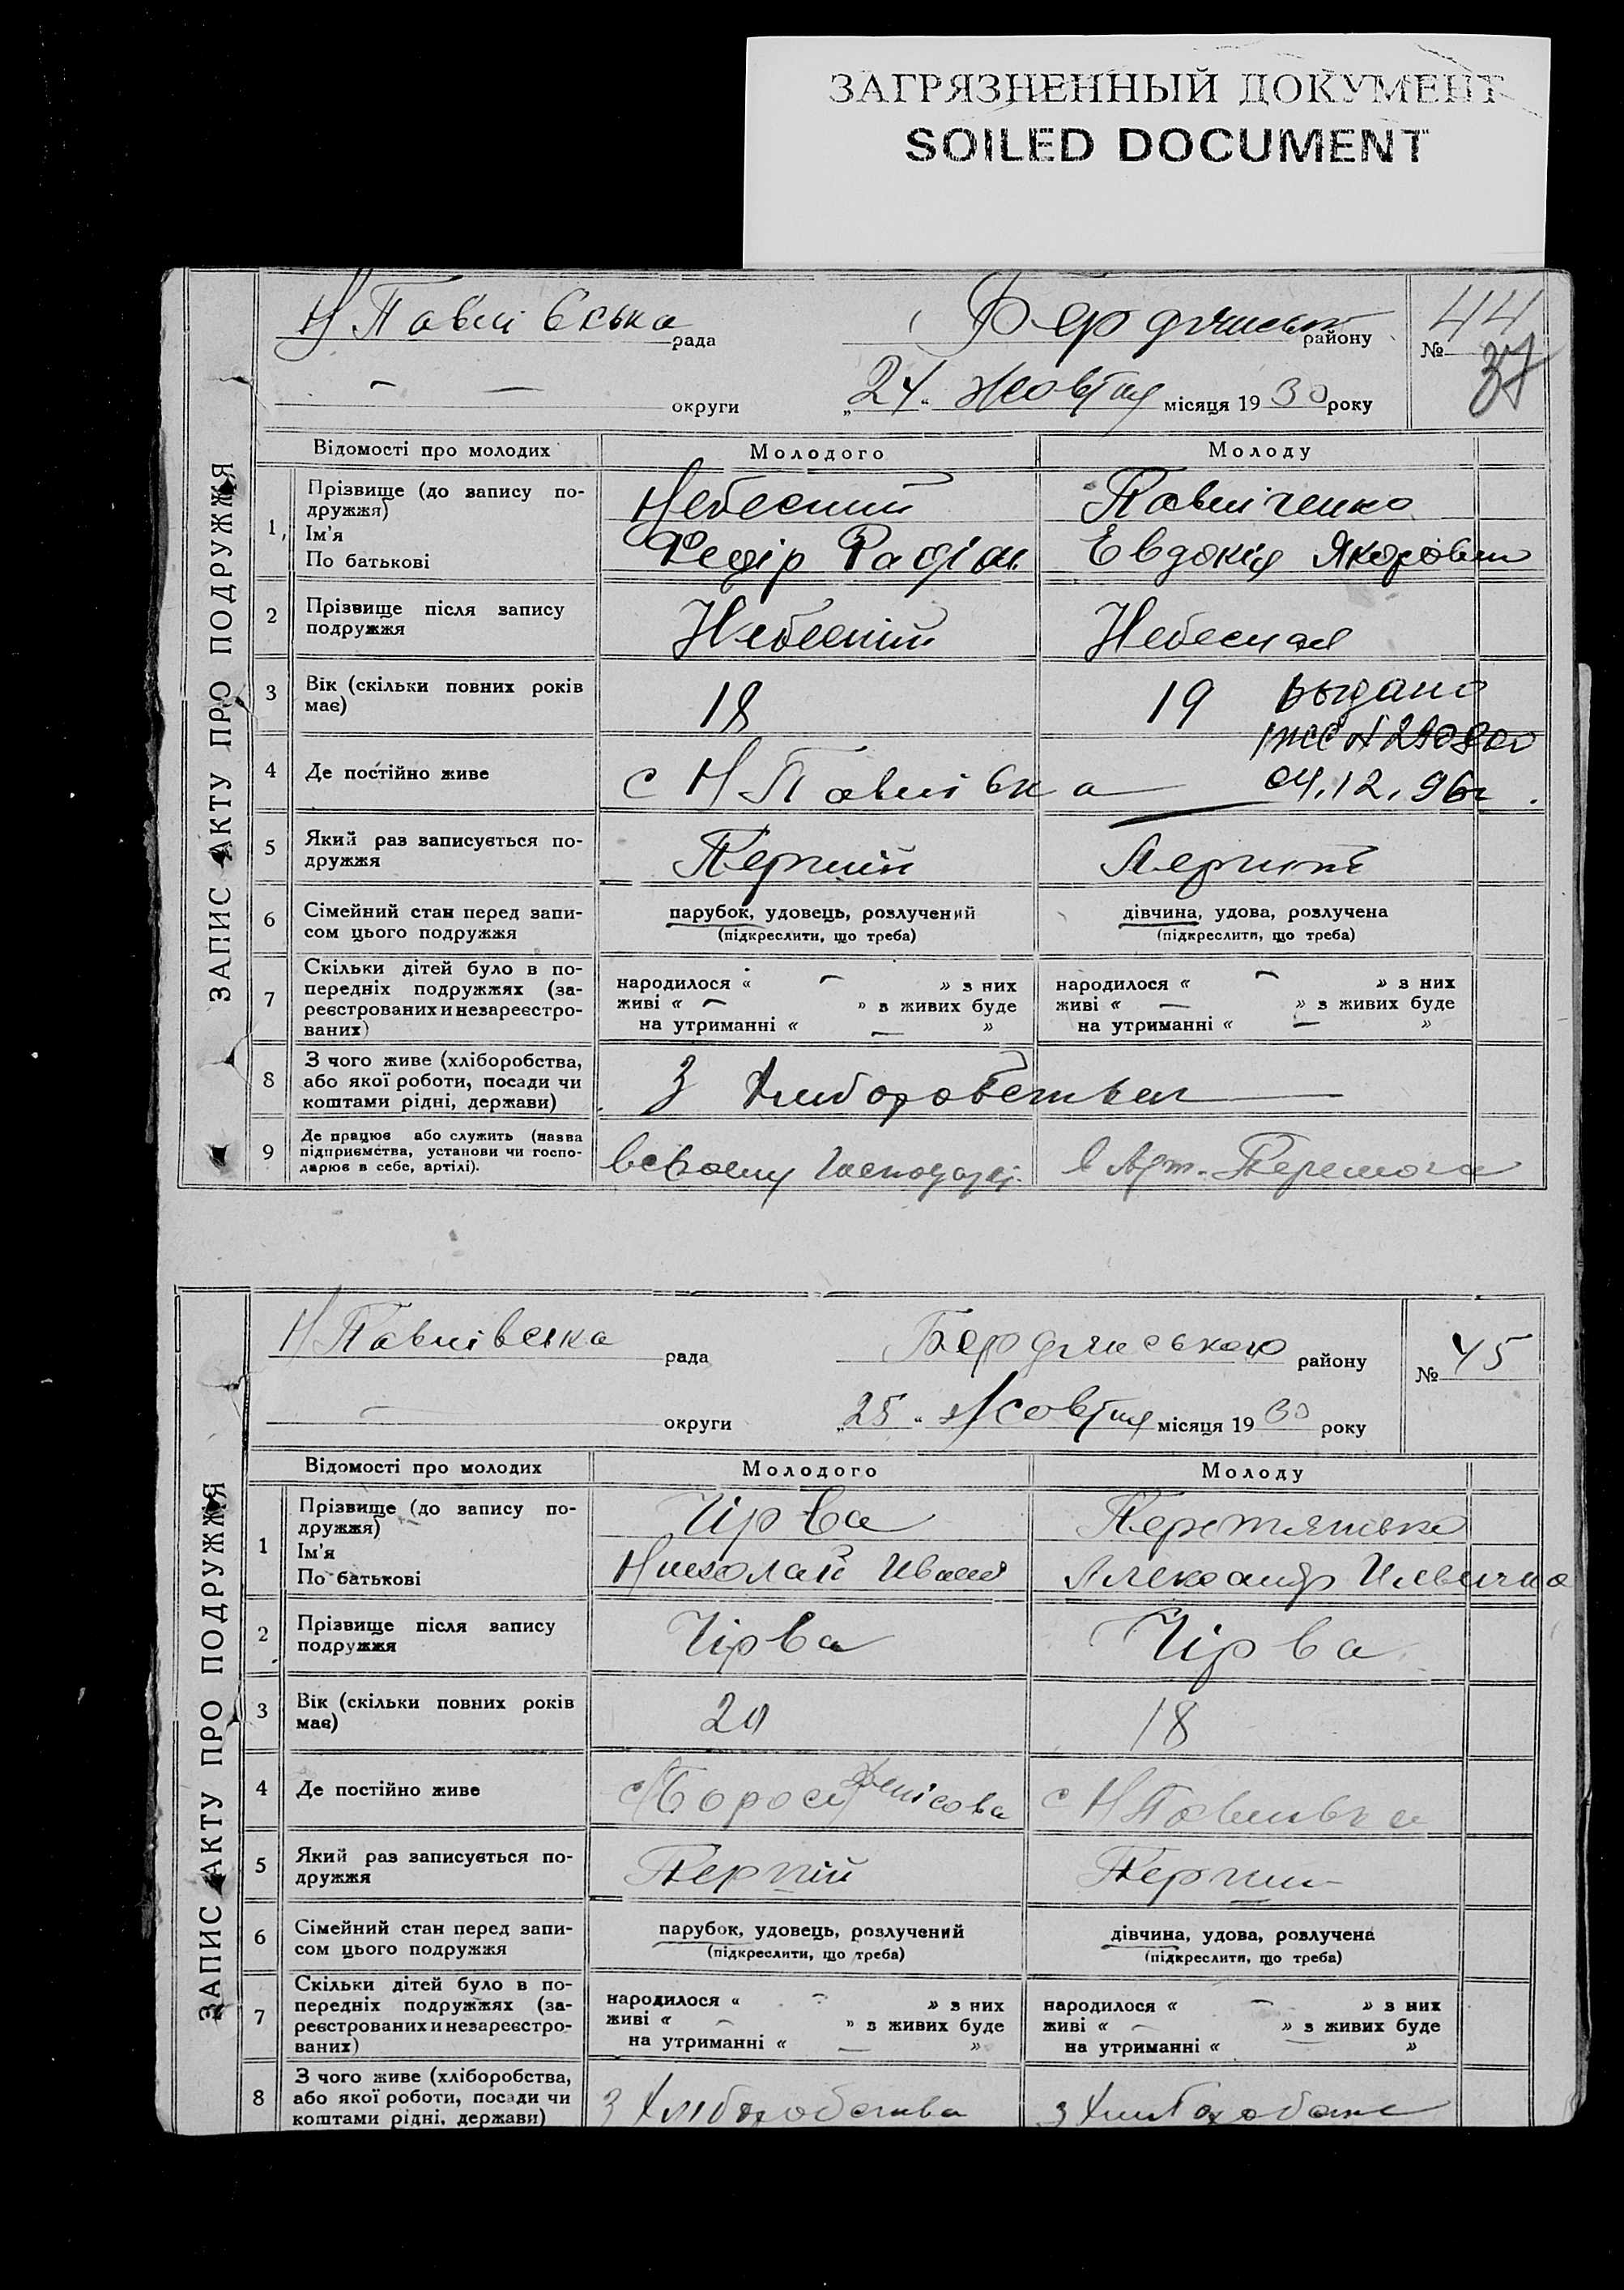 ЗАГРЯЗНЕННЫЙ ДОКУМЕНТ
SOILED DOCUMENT
ЗАПИС АКТУ ПРО ПОДРУЖЖЯ
Н Павлівська рада
району
№ 44
37
— — округи
„24“ жовтня місяця 1930 року
Відомості про молодих Молодого Молоду
1, Прізвище (до запису по-
дружжя)
Ім'я
По батькові
Небесний Павліченко
Федір Евдокія
2 Прізвище після запису
подружжя
Небесний Небесная
3 Вік (скільки повних років
має)
18 19
выдано
04.12.96г.
4 Де постійно живе
с Н Павлівка
5 Який раз записується по-
дружжя
Перший
6 Сімейний стан перед запи-
сом цього подружжя
парубок, удовець, розлучений дівчина, удова, розлучена
(підкреслити, що треба) (підкреслити, що треба)
7 Скільки дітей було в по-
передніх подружжях (за-
реєстрованих и незареєстро-
ваних)
народилося « — » з них народилося « — » з них
живі « — » з живих буде живі « — » з живих буде
на утриманні « — » на утриманні « — »
8 З чого живе (хліборобства,
або якої роботи, посади чи
коштами рідні, держави)
З
9 Де працює або служить (назва
підприємства, установи чи госпо-
дарює в себе, артілі).
в Арт. Перемога
ЗАПИС АКТУ ПРО ПОДРУЖЖЯ
Н Павлівська рада
Бердянською району
№ 45
— округи
„25“ Жовтня місяця 1930 року
Відомості про молодих Молодого Молоду
1 Прізвище (до запису по-
дружжя)
Ім'я
По батькові
Чірва
Николай Иван Александр
2 Прізвище після запису
подружжя
Чірва Чірва
3 Вік (скільки повних років
має)
20 18
4 Де постійно живе
с Н Павлівка
5 Який раз записується по-
дружжя
6 Сімейний стан перед запи-
сом цього подружжя
парубок, удовець, розлучений дівчина, удова, розлучена
(підкреслити, що треба) (підкреслити, що треба)
7 Скільки дітей було в по-
передніх подружжях (за-
реєстрованих и незареєстро-
ваних)
народилося « — » з них народилося « — » з них
живі « — » з живих буде живі « — » з живих буде
на утриманні « — » на утриманні « — »
8 З чого живе (хліборобства,
або якої роботи, посади чи
коштами рідні, держави)
З Хліборобства з